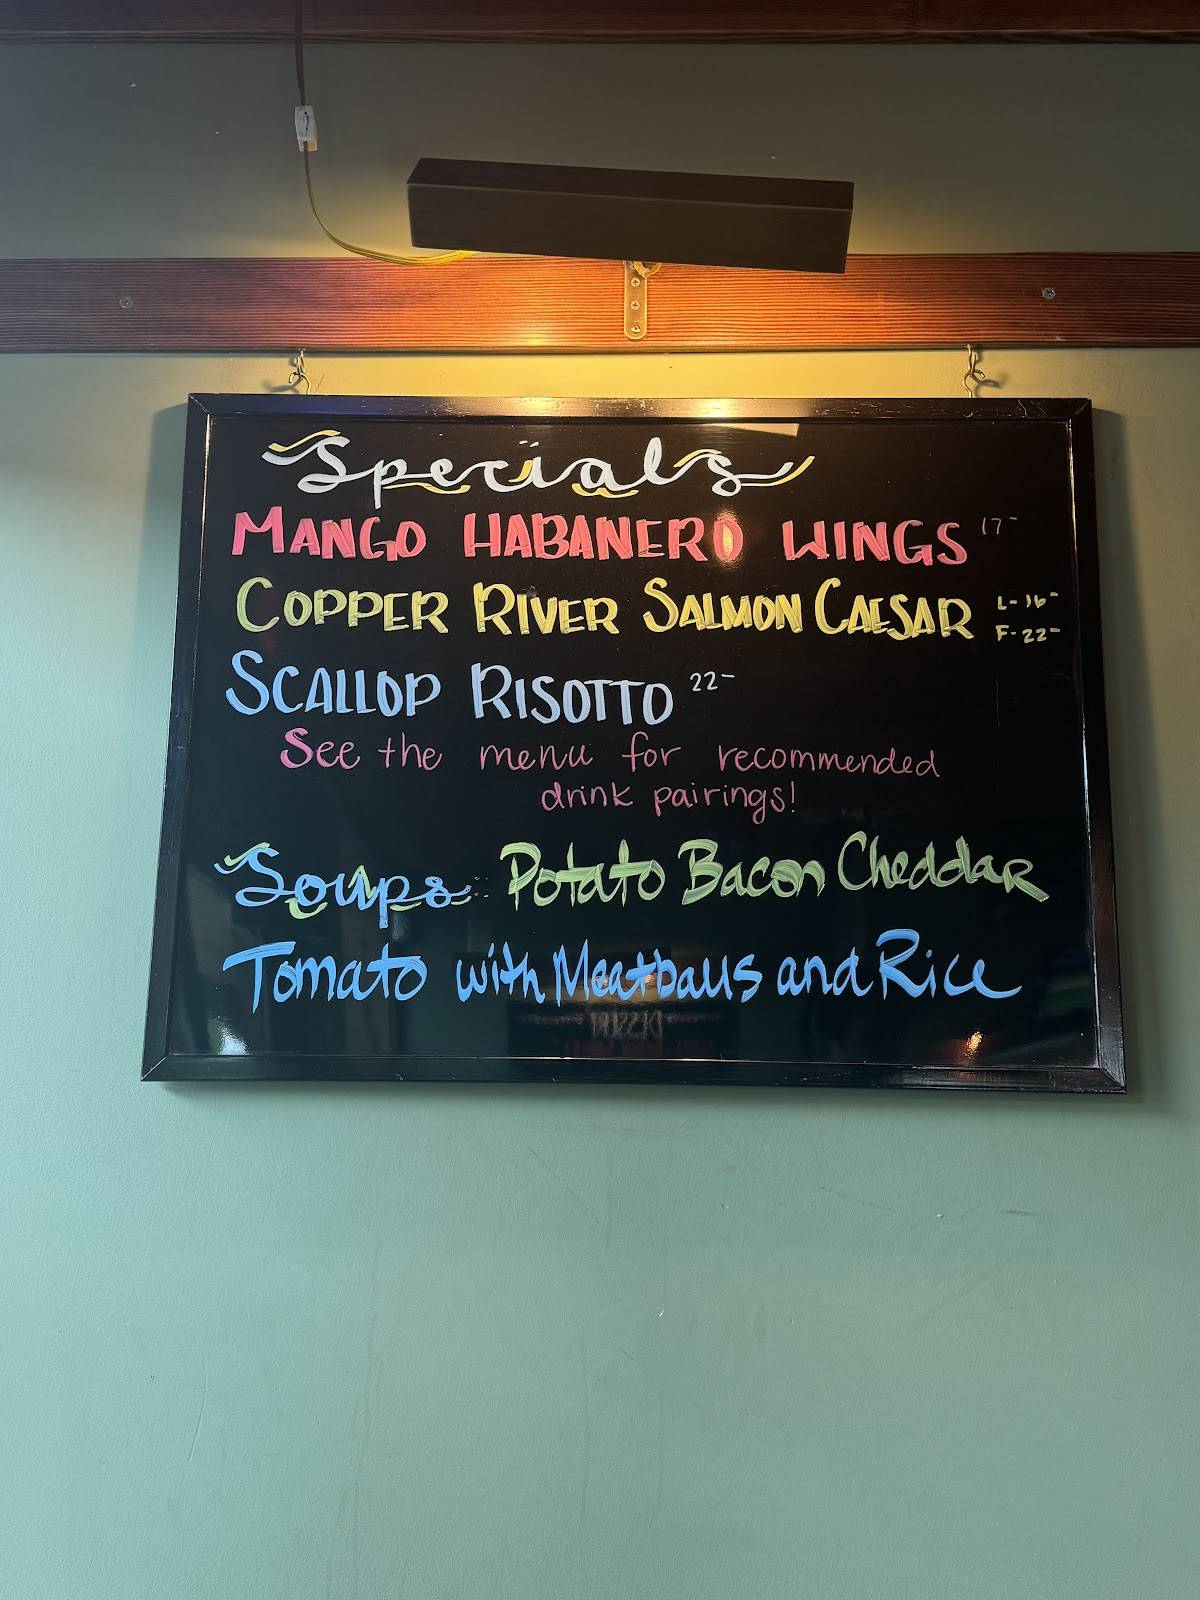 Specials
MANGO HABANERO WINGS 17-
COPPER RIVER SALMON CAESAR L-16-
F-22-
SCALLOP RISOTTO 22-
See the menu for recommended
drink pairings!
Soups: Potato Bacon Cheddar
Tomato with Meatballs and Rice